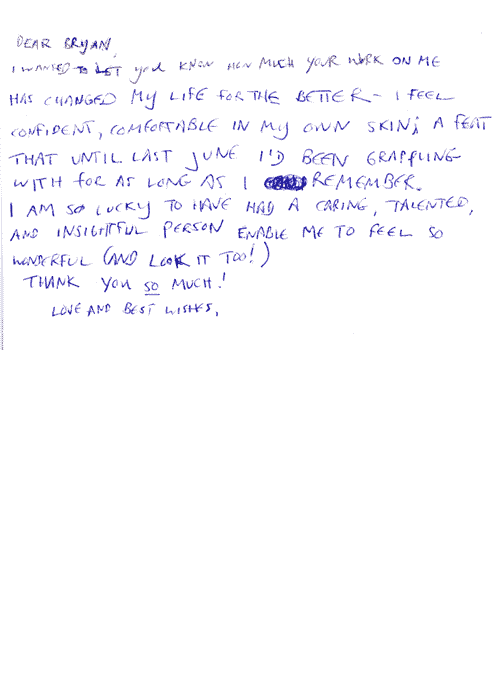 DEAR BRYAN,
I WANTED TO LET YOU KNOW HOW MUCH YOUR WORK ON ME
HAS CHANGED MY LIFE FOR THE BETTER - I FEEL
CONFIDENT, COMFORTABLE IN MY OWN SKIN; A FEAT
THAT UNTIL LAST JUNE I'D BEEN GRAPPLING
WITH FOR AS LONG AS I REMEMBER.
I AM SO LUCKY TO HAVE HAD A CARING, TALENTED,
AND INSIGHTFUL PERSON ENABLE ME TO FEEL SO
WONDERFUL (AND LOOK IT TOO!)
THANK YOU SO MUCH!
LOVE AND BEST WISHES,